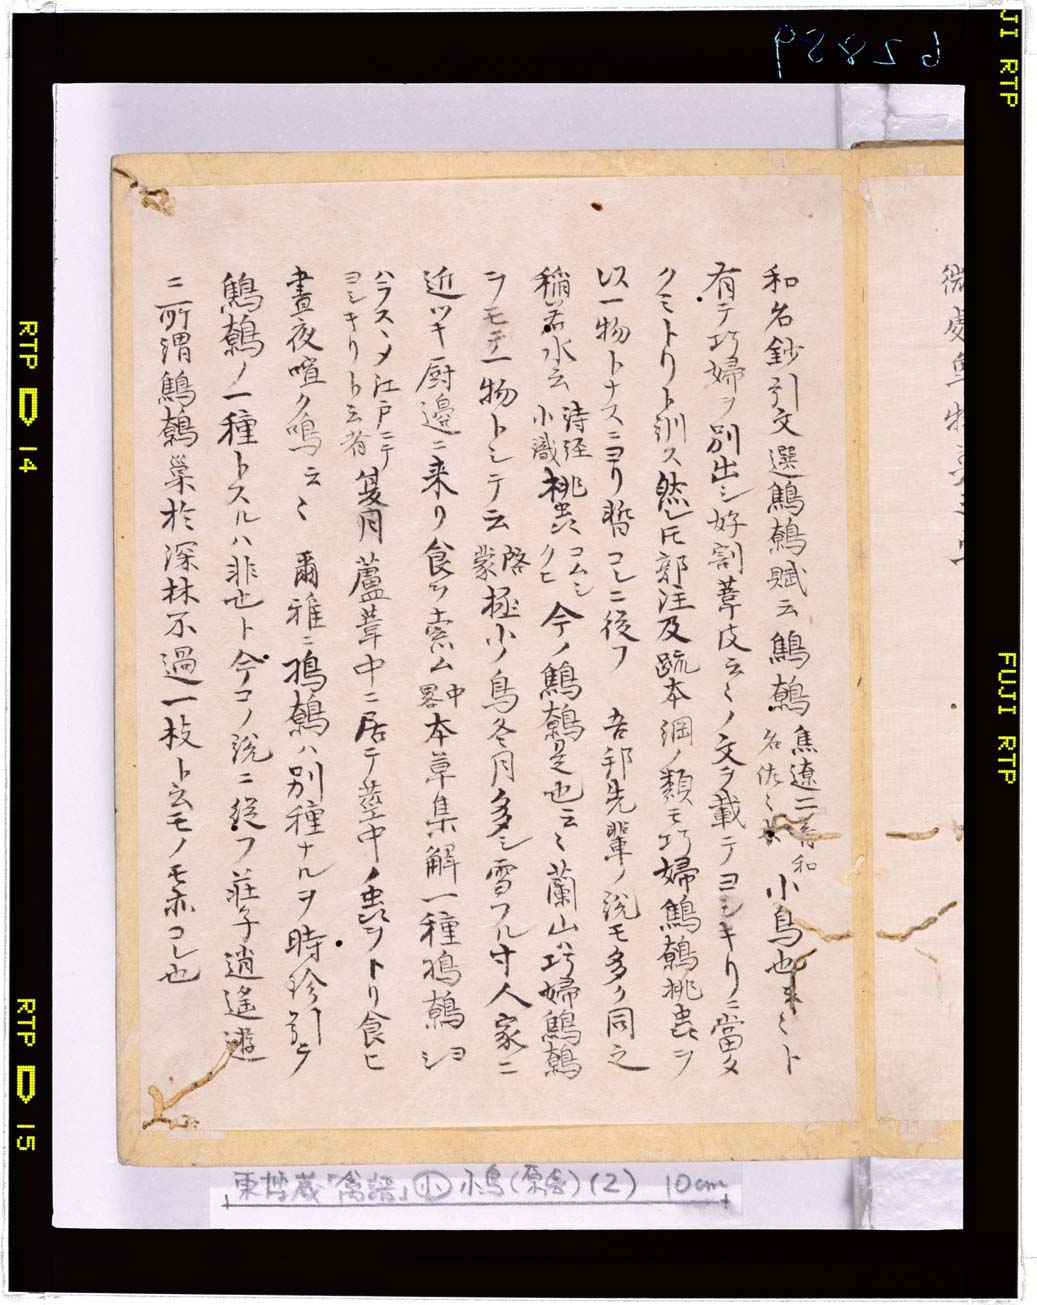 和名鈔引文選鷦鷯賦云鷦鷯焦遼二音和名佐々木小鳥也云々ト
有テ巧婦ヲ別出シ好割葦皮云々ノ文ヲ載テヨシキリニ當タ
クミトリト訓ス然レ𪜈郭注及疏本綱ノ類モ巧婦鷦鷯桃虫ヲ
以一物トナスニヨリ暫コレニ從フ 吾邦先輩ノ説モ多ク同之
稲若水云詩経小識桃蟲コムシクヒ今ノ鷦鷯是也云々蘭山ハ巧婦鷦鷯
ヲモテ一物トシテ云啓蒙極小ノ鳥冬月多シ雪フル寸人家ニ
近ツキ厨邊ニ来リ食ヲ索ム中畧本草集解一種鳭鷯ヨシ
ハラスヽメ江戸ニテヨシキリト云者夏月蘆葦中ニ居テ莖中ノ虫ヲトリ食ヒ
晝夜喧ク鳴云々 爾雅ニ鳭鷯ハ別種ナルヲ時珍引テ
鷦鷯ノ一種トスルハ非也ト今コノ説ニ從フ荘子逍遙遊
ニ所謂鷦鷯巢於深林不過一枝ト云モノモ亦コレ也
東博蔵「禽譜」小 小鳥(原色)(2) 10cm
98826
FUJI RTP
JI RTP
RTP D 14
RTP D 15